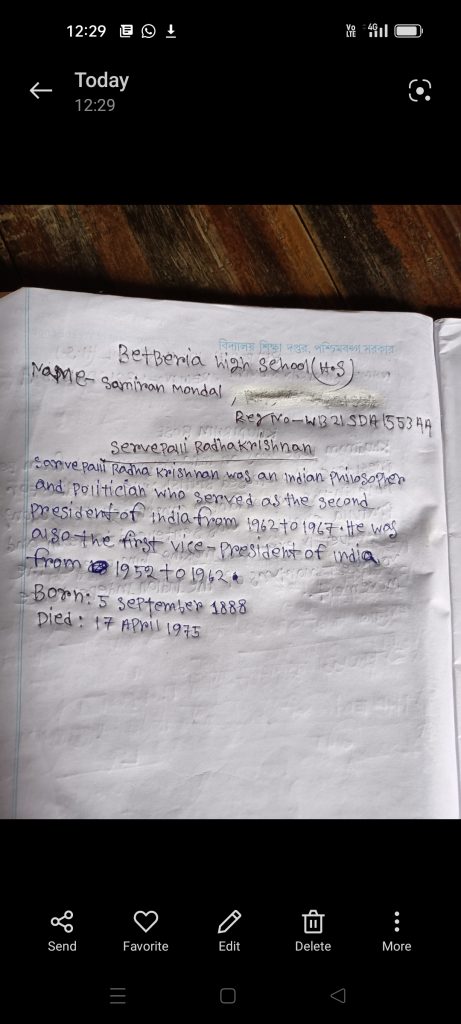 12:29
Vo LTE 4G
Today
12:29
বিদ্যালয় শিক্ষা দপ্তর, পশ্চিমবঙ্গ সরকার
Betberia high school (H.S)
Name- Samiran Mondal,
Reg No-WB21SDA1553AA
Servepalli Radhakrishnan
Sarvepalli Radha Krishnan was an indian Philosopher
and politician who served as the second
president of india from 1962 to 1967. He was
also the first vice-president of india
from 1952 to 1962.
Born: 5 September 1888
Died: 17 April 1975
Send Favorite Edit Delete More